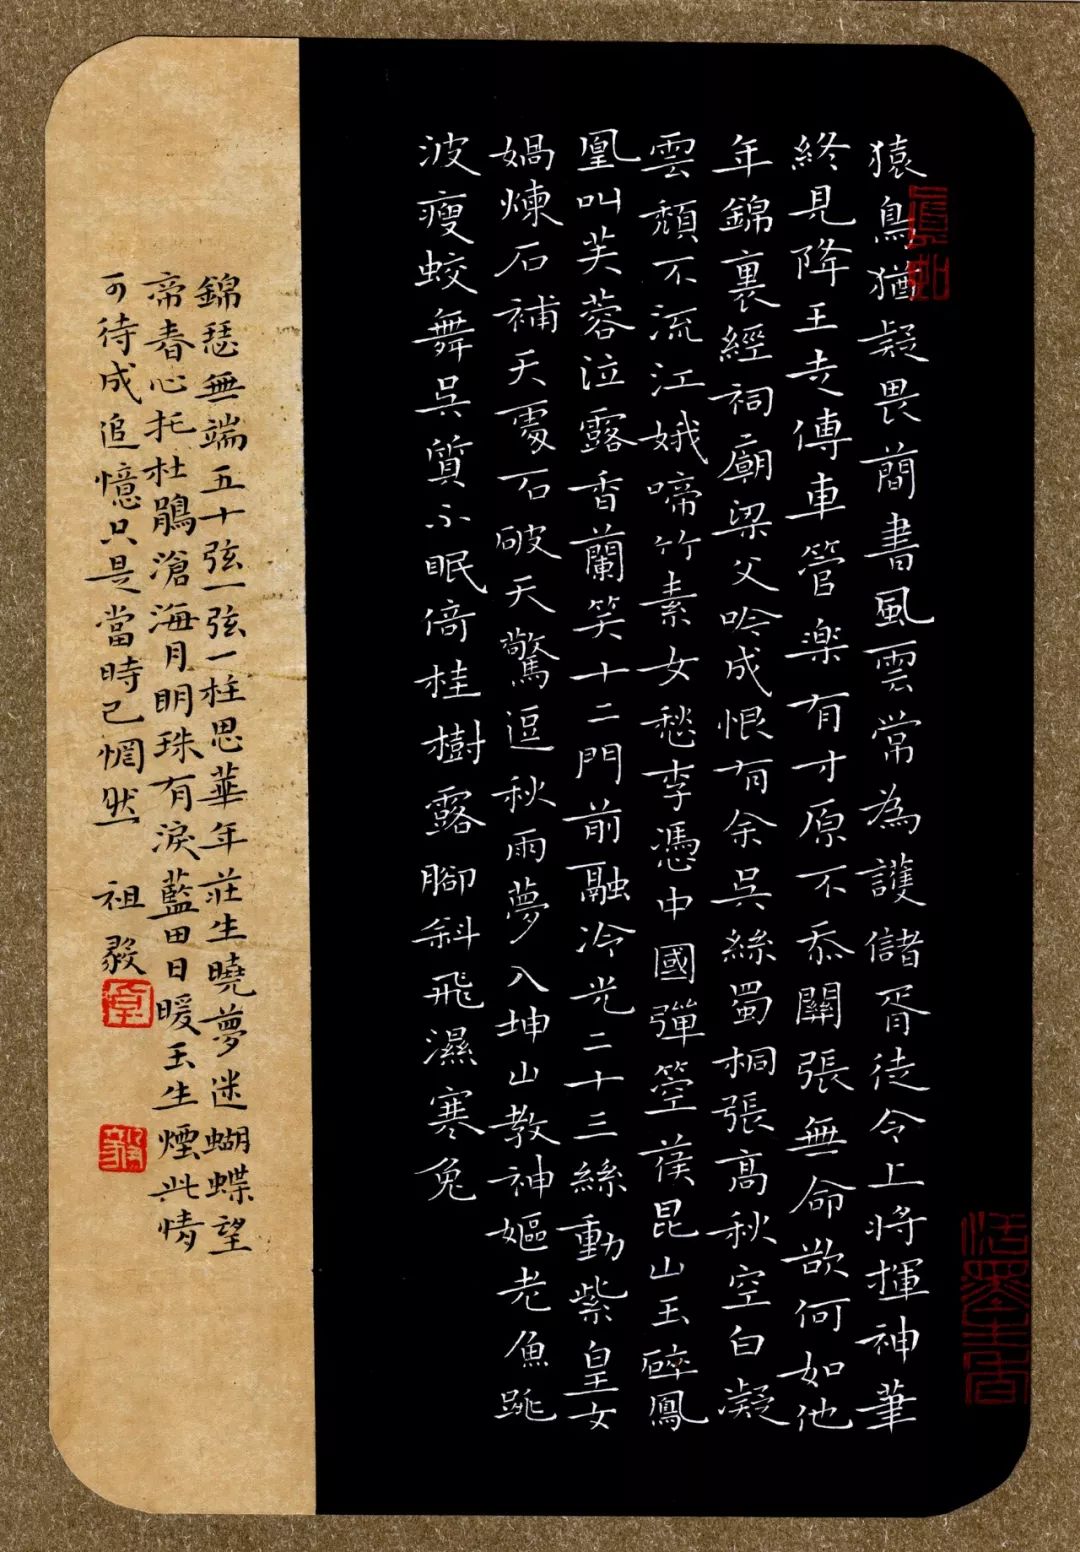 猿鳥猶疑畏簡書風雲常為護儲胥徒令上將揮神筆
終見降王走傳車管楽有才原不忝關張無命欲何如他
年錦裏經祠廟梁父吟成恨有余吳絲蜀桐張高秋空白凝
雲頹不流江娥啼竹素女愁李憑中國彈箜篌昆山玉碎鳳
凰叫芙蓉泣露香蘭笑十二門前融冷光二十三絲動紫皇女
媧煉石補天處石破天驚逗秋雨夢入坤山教神嫗老魚跳
波瘦蛟舞吳質不眠倚桂樹露腳斜飛濕寒兔
錦瑟無端五十弦一弦一柱思華年莊生曉夢迷蝴蝶望
帝春心托杜鵑滄海月明珠有淚藍田日暖玉生煙此情
可待成追憶只是當時已惘然 祖毅